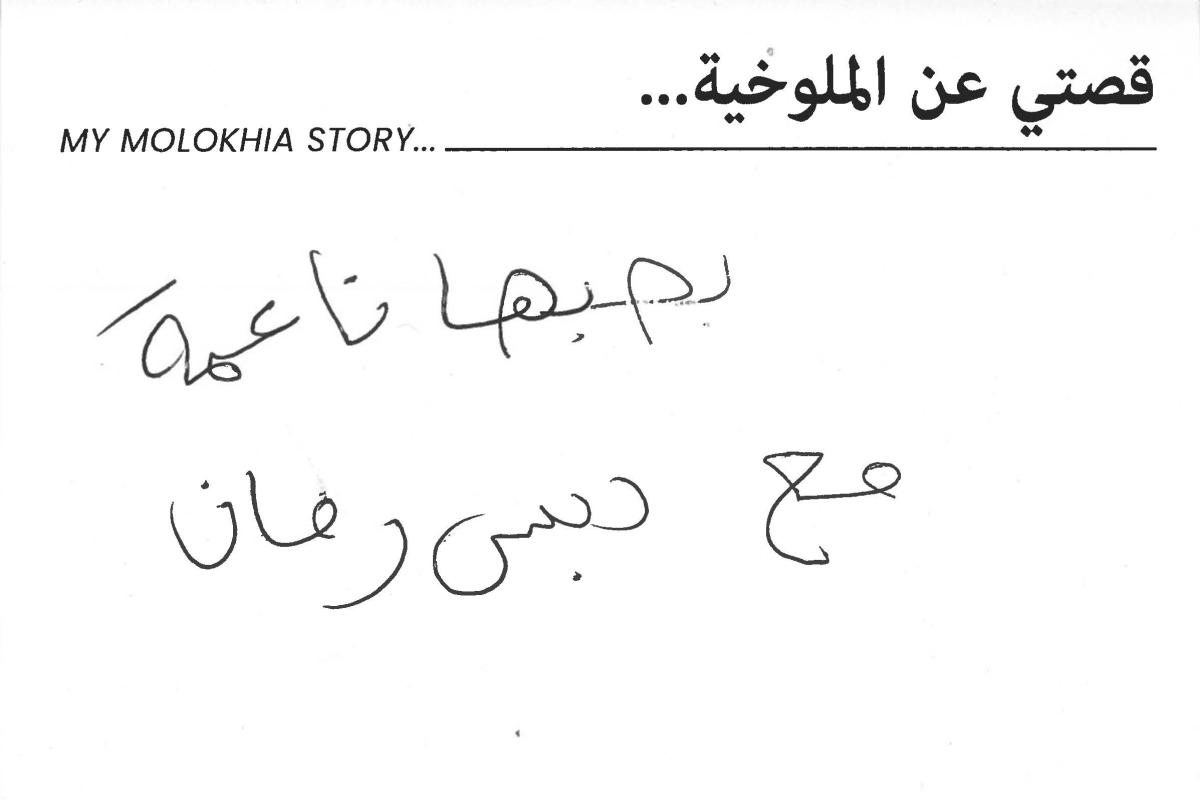 قصتي عن الملوخية...
MY MOLOKHIA STORY...
بحبها ناعمة
مع دبس رمان